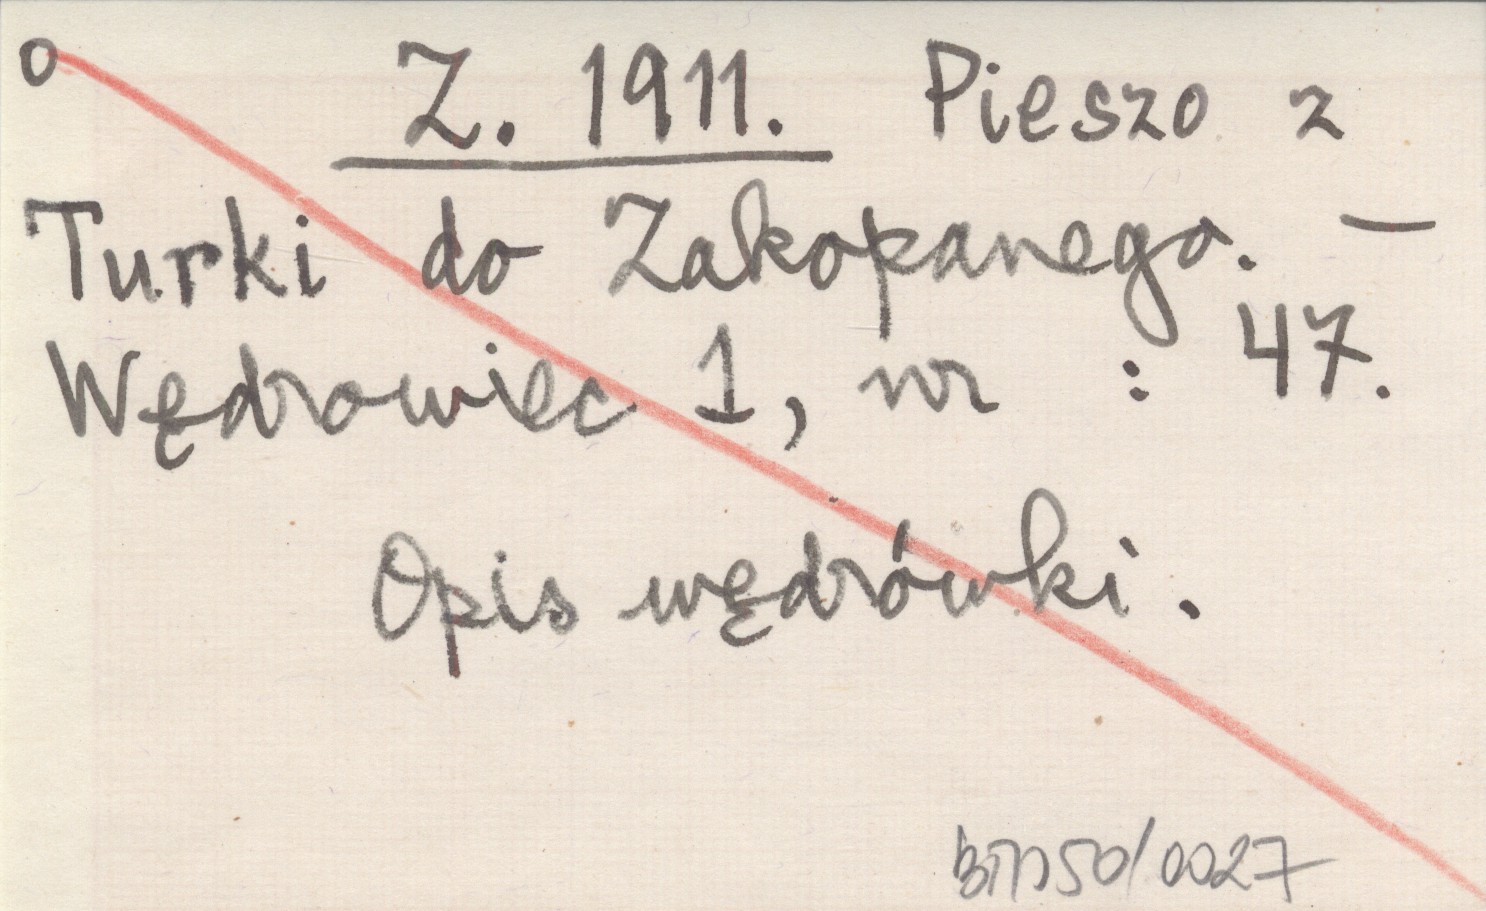 o Z. 1911. Pieszo z
Turki do Zakopanego. —
Wędrowiec 1, nr : 47.
Opis wędrówki.
50/0027